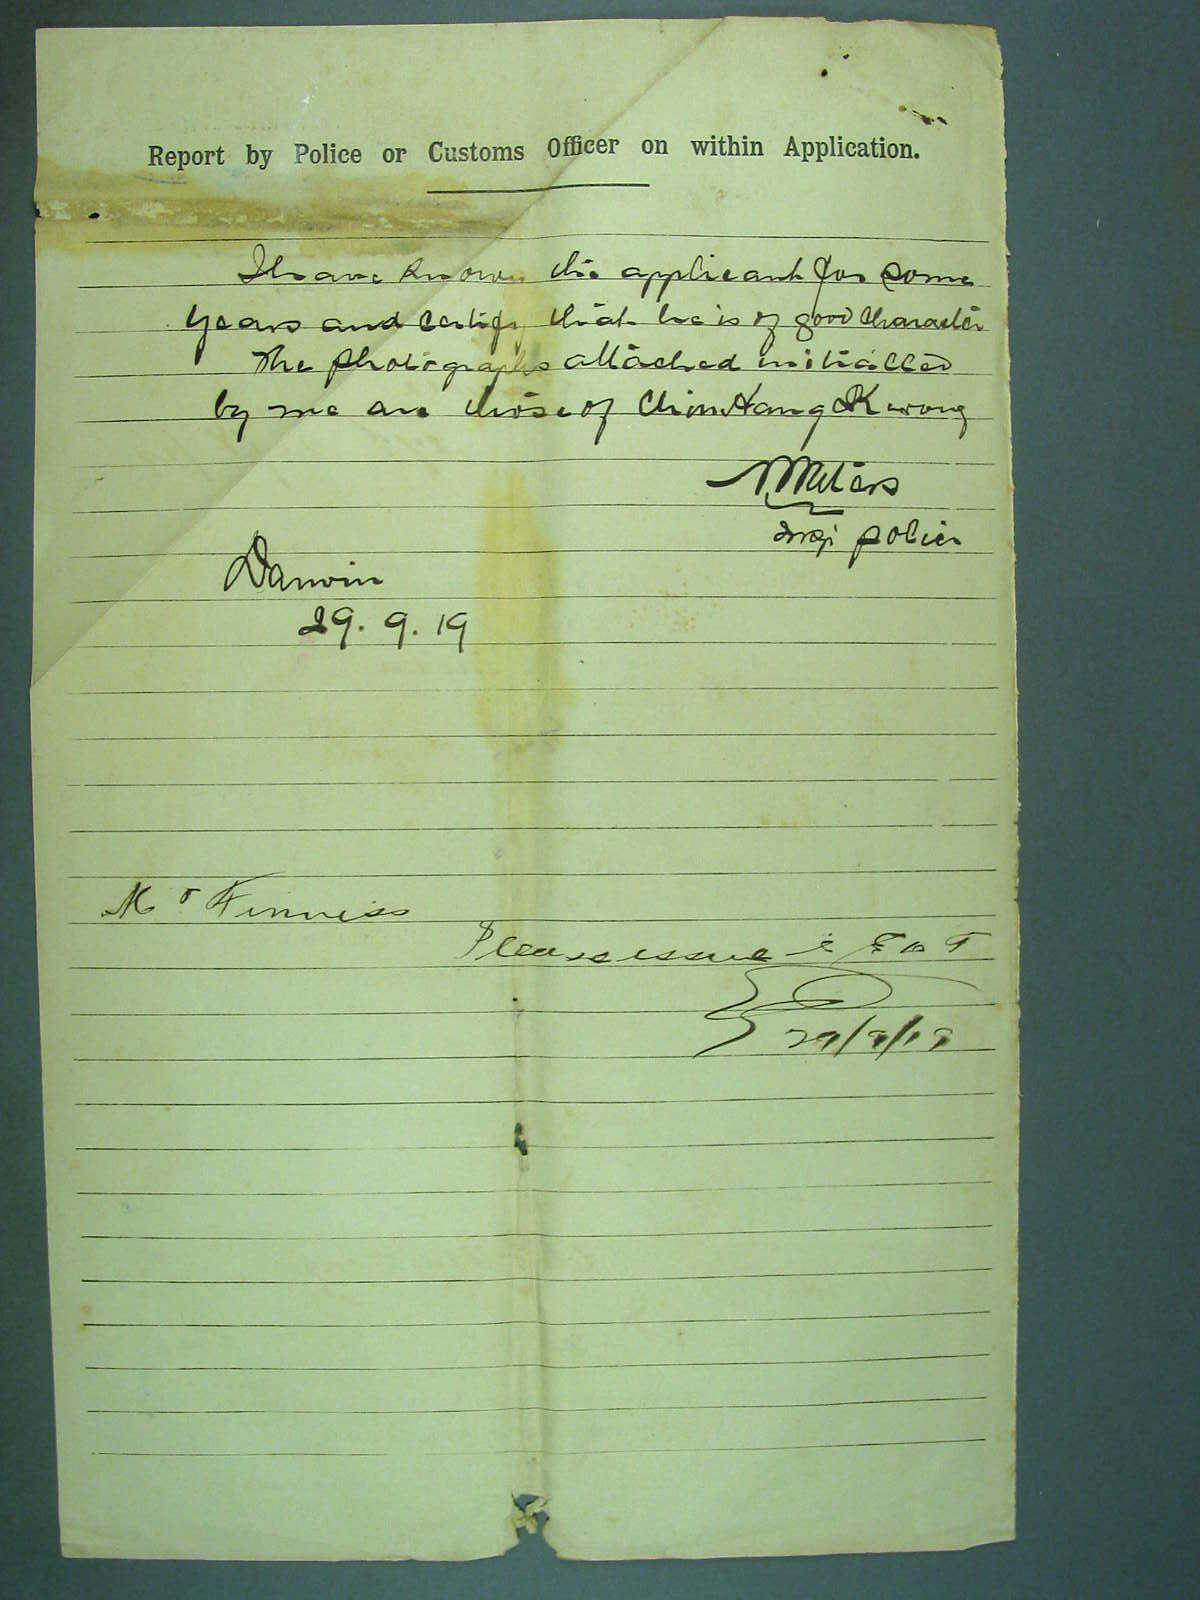 Report by Police or Customs Officer on within Application.
I have known the applicant for some
years and certify that he is of good character
The photographs attached initialled
by me are those of Chin Hang Kwong
Waters
Insp police
Darwin
29.9.19
Mr Finniss
Please issue
29/9/19